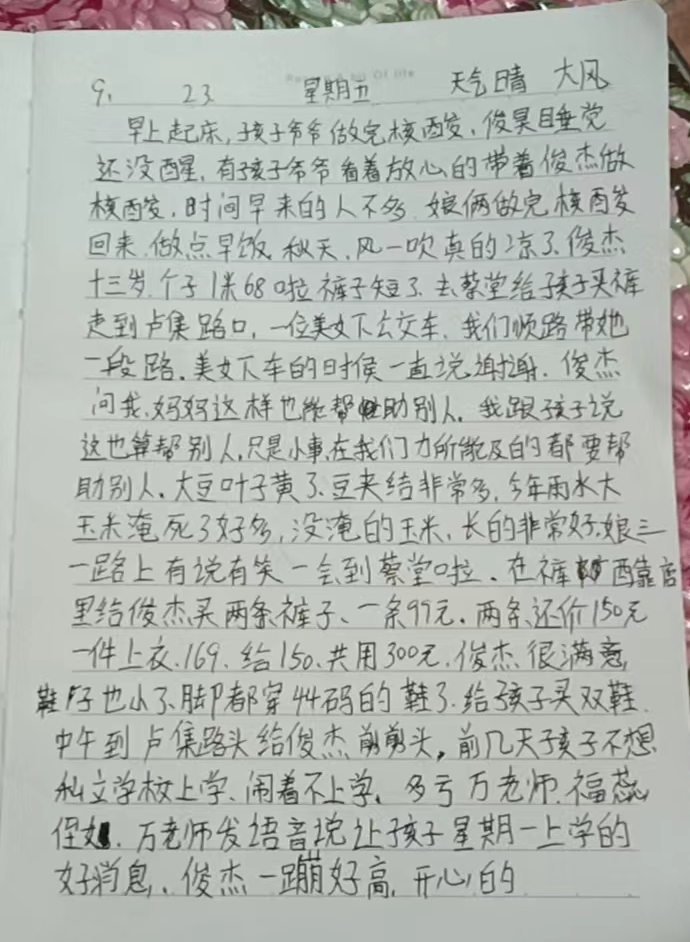 9. 23 星期五 天气晴 大风
早上起床,孩子爷爷做完核酸,俊昊睡觉
还没醒,有孩子爷爷看着放心的带着俊杰做
核酸,时间早来的人不多,娘俩做完核酸
回来,做点早饭,秋天,风一吹真的凉了,俊杰
十三岁,个子1米68啦裤子短了,去蔡堂给孩子买裤
走到卢集路口,一位美女下公交车,我们顺路带她
一段路.美女下车的时候一直说谢谢.俊杰
问我,妈妈这样也能帮助别人,我跟孩子说
这也算帮别人,只是小事,在我们力所能及的都要帮
助别人.大豆叶子黄了,豆夹结非常多,今年雨水大
玉米淹死了好多,没淹的玉米,长的非常好,娘三
一路上有说有笑一会到蔡堂啦.在裤都酉靠店
里给俊杰买两条裤子、一条99元.两条还价150元
一件上衣.169.给150.共用300元.俊杰很满意,
鞋子也小了,脚都穿44码的鞋了.给孩子买双鞋.
中午到卢集路头给俊杰剪剪头,前几天孩子不想
私立学校上学、闹着不上学,多亏万老师.福蕊
侄女.万老师发语音说让孩子星期一上学的
好消息.俊杰一蹦好高,开心的